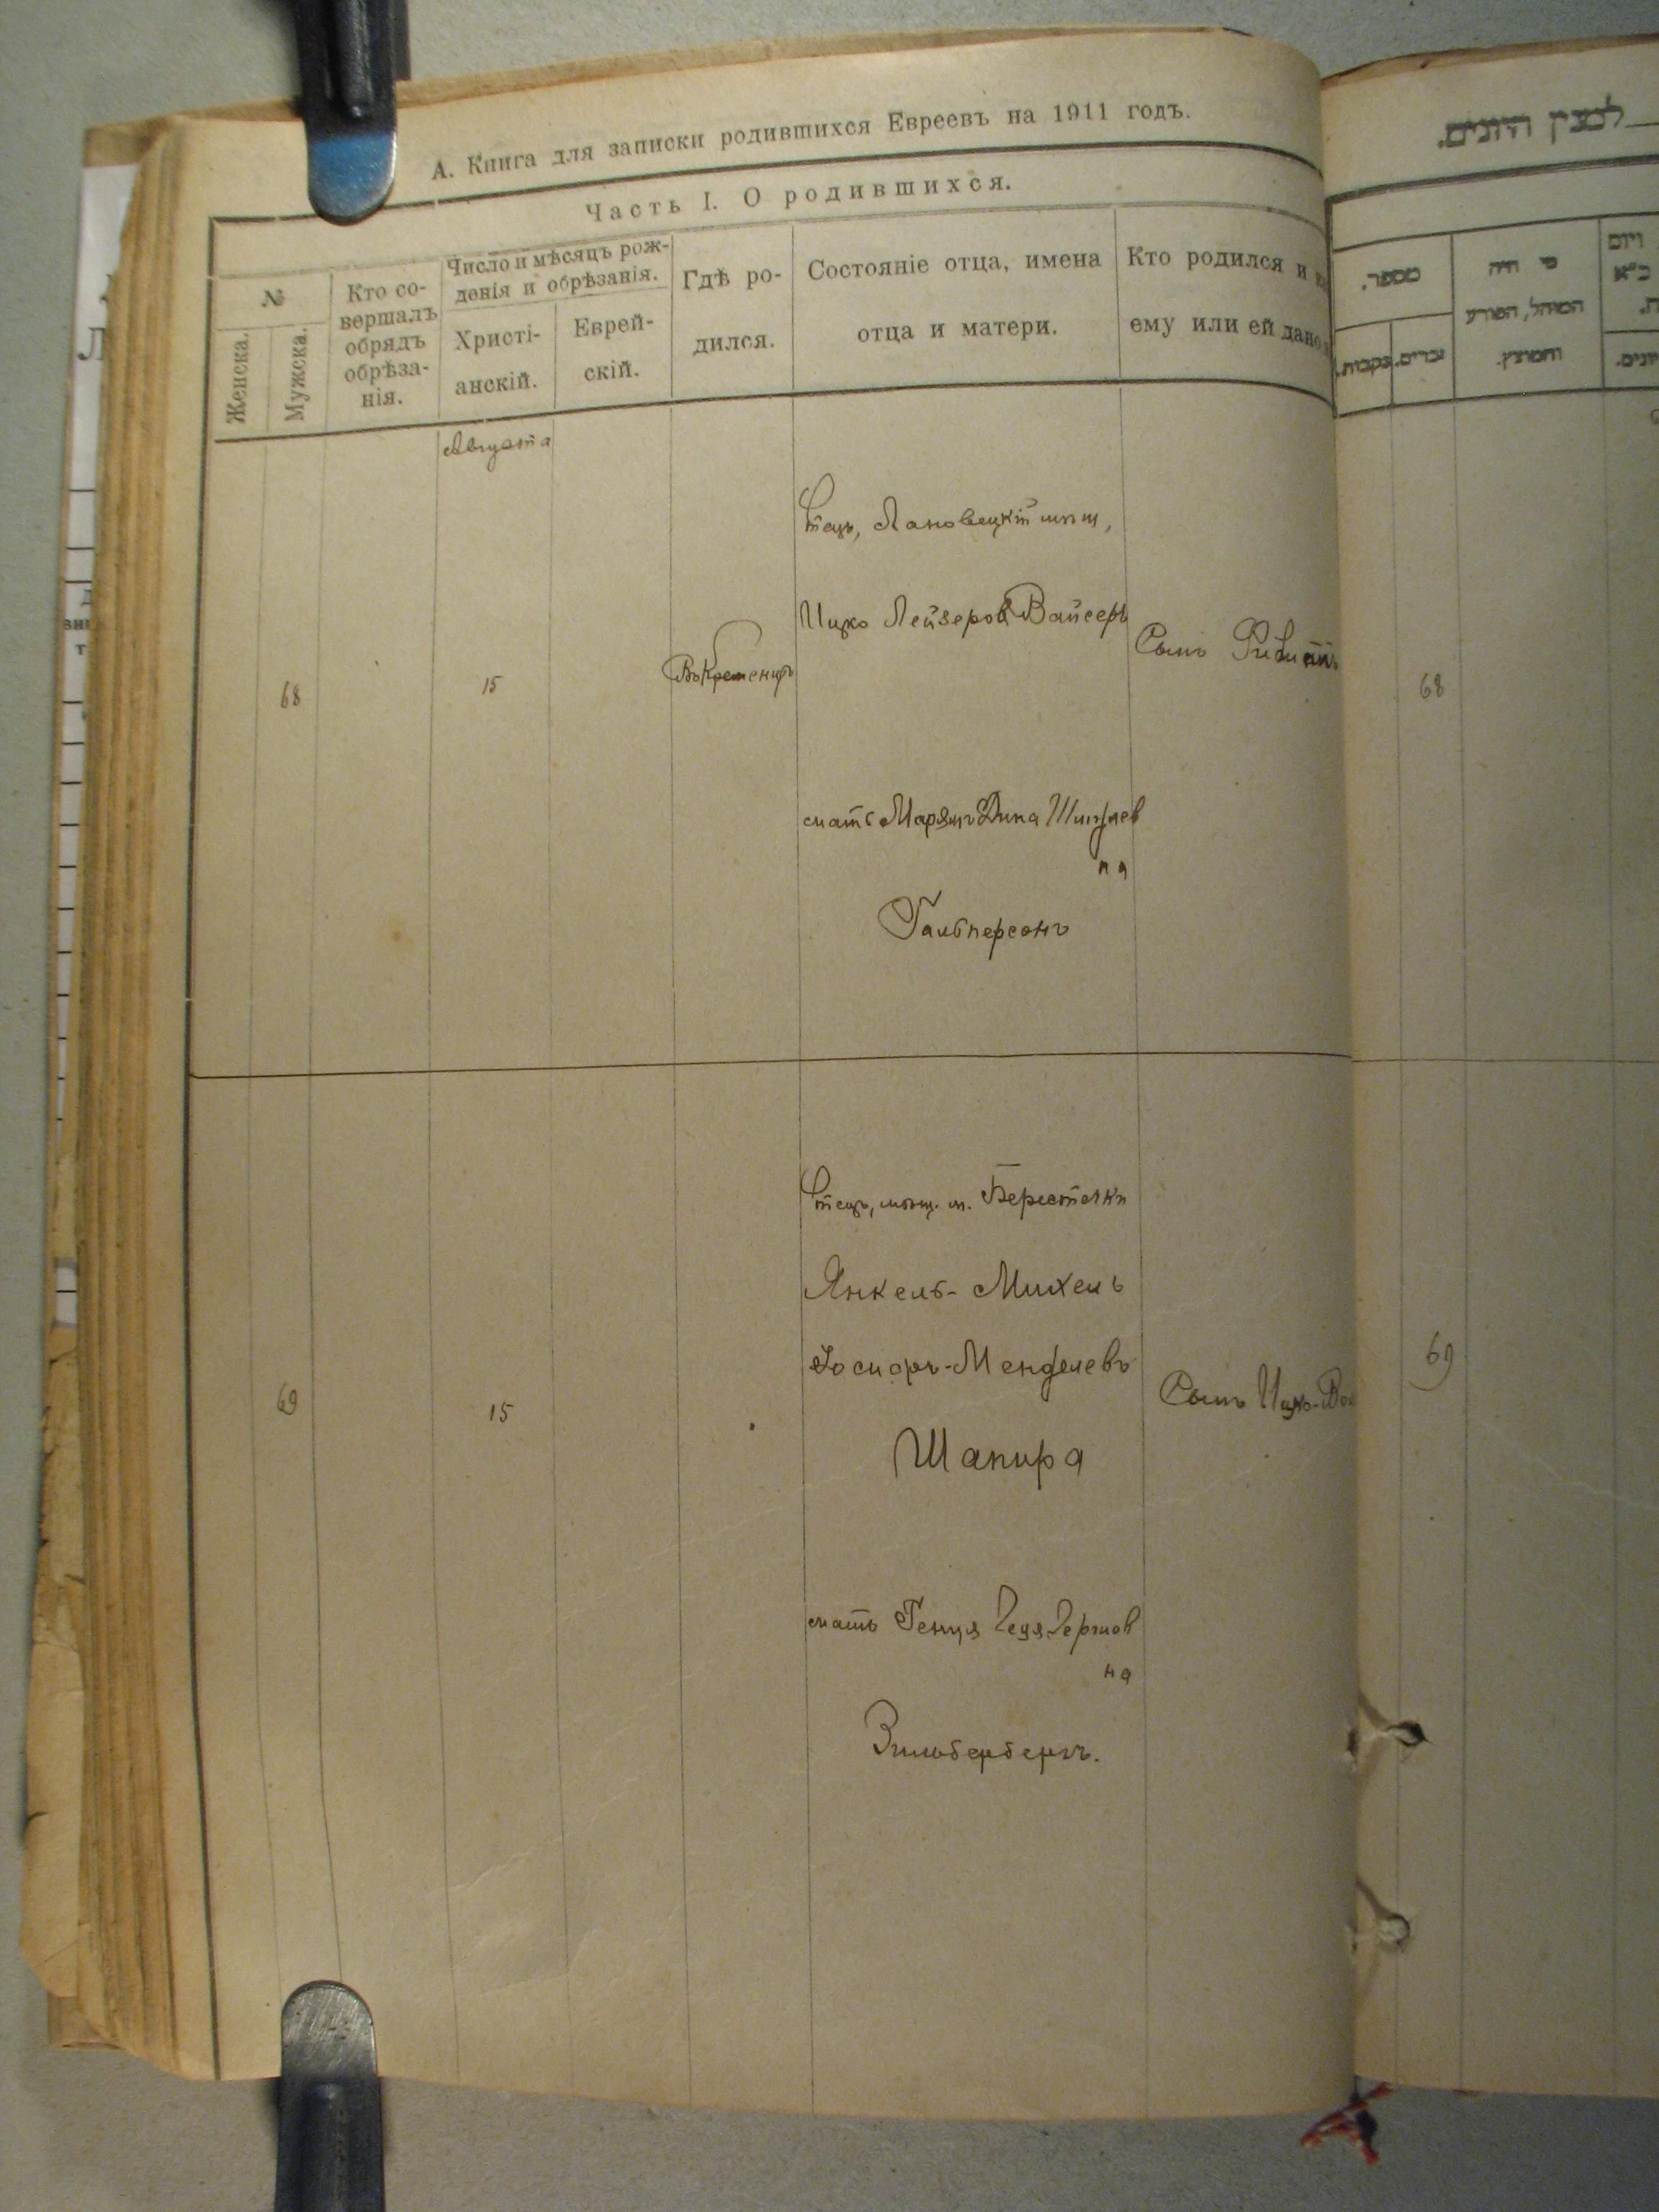 А. Книга для записки родившихся Евреевъ на 1911 годъ.
Часть I. О родившихся.
№
Женска.
Мужска.
Кто со-
вершалъ
обрядъ
обрѣза-
нія.
Число и мѣсяцъ рож-
денія и обрѣзанія.
Христі-
анскій.
Еврей-
скій.
Гдѣ ро-
дился.
Состояніе отца, имена
отца и матери.
Кто родился и
ему или ей дано
Августа
68
15
Въ Кременцѣ
Отецъ, Лановецкій мѣщ,
Ицко Лейзеровъ Вайсеръ
мать Марьямъ Дина
на
Гальперсонъ
Сынъ
69
15
Отецъ, мѣщ. м. Берестечки
Янкель-Михель
Іосифъ-Менделевъ
Шапира
мать Генця
на
Зильбербергъ.
Сынъ Ицко-
מספר.
זכרים.
נקבות.
מי היה
המוהל, הפורע
והמוצץ.
68
69